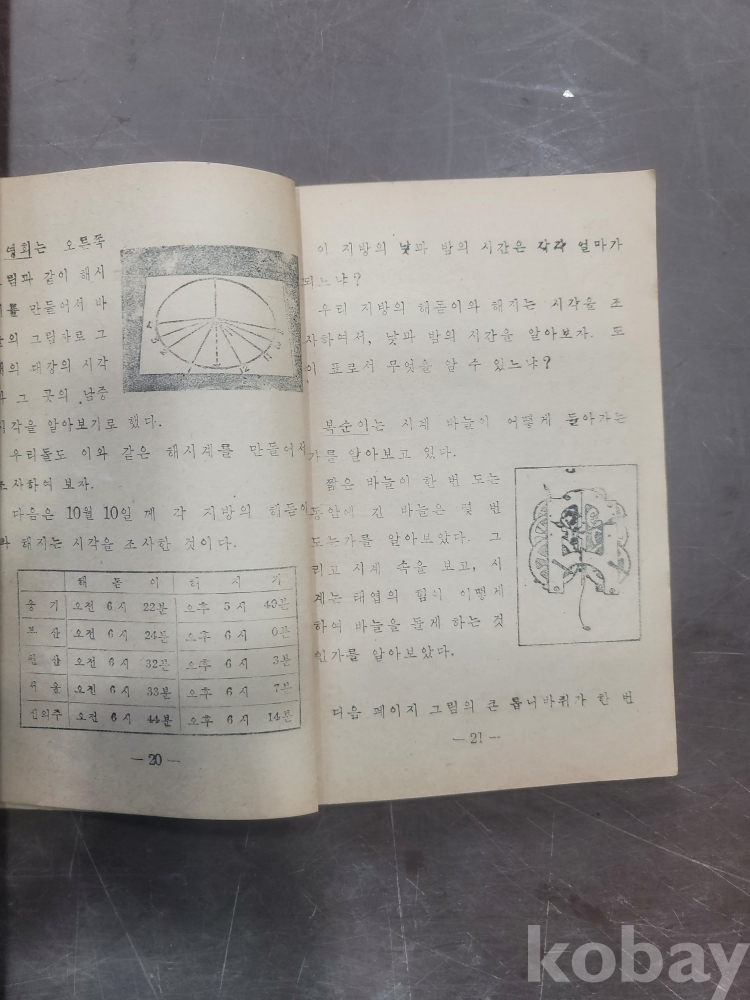 영희는 오른쪽
같이 해시
를 만들어서 바
의 그림자로 그
의 대강의 시각
그 곳의 남중
시각을 알아보기로 했다.
우리들도 이와 같은 해시계를 만들어서
조사하여 보자.
다음은 10월 10일 께 각 지방의 해돋이
와 해지는 시각을 조사한 것이다.
해 돋 이
웅 기 오전 6시 22분 오후 5시 43분
부 산 오전 6시 24분 오후 6시 0분
오전 6시 32분 오후 6시 3분
서 울 오전 6시 33분 오후 6시 7분
신의주 오전 6시 44분 오후 6시 14분
— 20 —
이 지방의 낮과 밤의 시간은 각각 얼마가
되느냐?
우리 지방의 해돋이와 해지는 시각을 조
사하여서, 낮과 밤의 시간을 알아보자. 또
이 표로서 무엇을 알 수 있느냐?
복순이는 시계 바늘이 어떻게 돌아가는
가를 알아보고 있다.
짧은 바늘이 한 번 도는
동안에 긴 바늘은 몇 번
도는가를 알아보았다. 그
리고 시계 속을 보고, 시
계는 태엽의 힘이 어떻게
하여 바늘을 돌게 하는 것
인가를 알아보았다.
다음 페이지 그림의 큰 톱니바퀴가 한 번
— 21 —
kobay